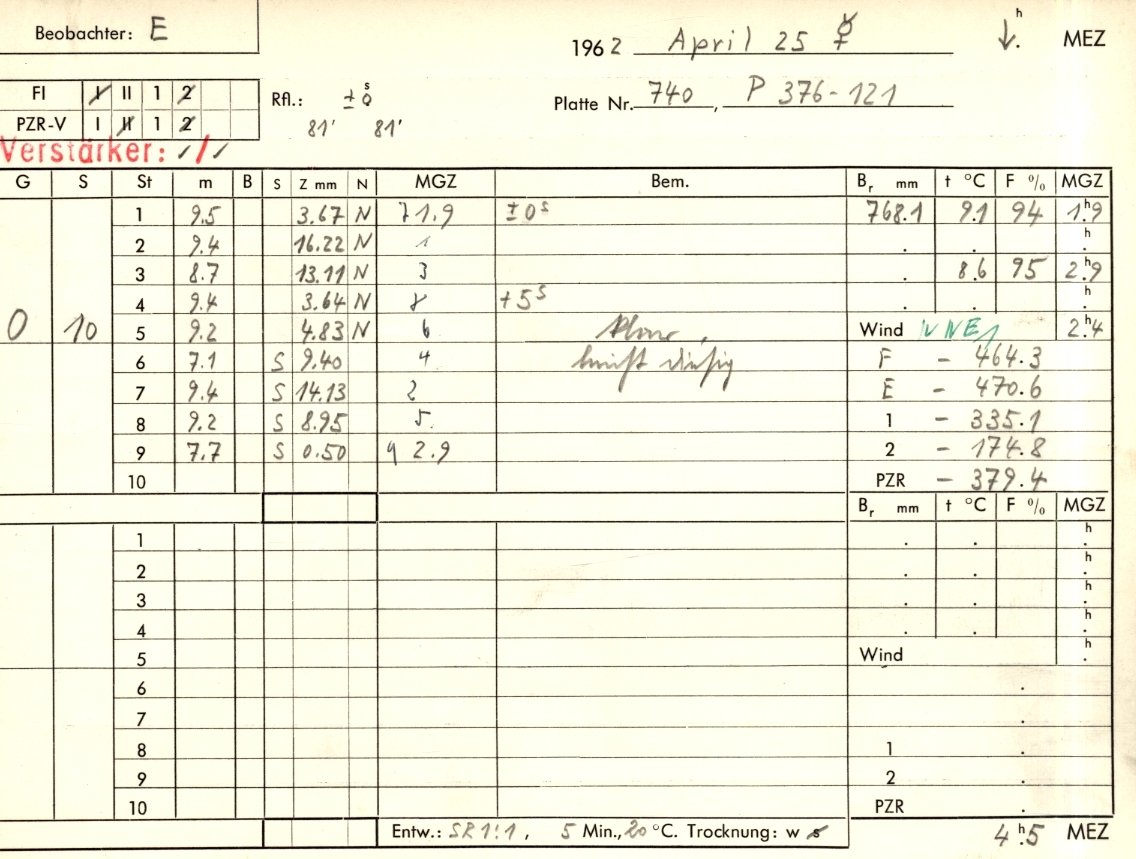 Beobachter: E
1962 April 25 ☿ h . MEZ
FI I II 1 2
PZR-V I II 1 2
Rfl.: ±0 s
81' 81'
Platte Nr. 740, P 376-121
Verstärker: ///
G S St m B S Z mm N MGZ Bem. Br mm t °C F % MGZ
0 10
1 9.5 3.67 N 71.9 ±0s 768.1 9.1 94 1h9
2 9.4 16.22 N 1 . . h.
3 8.7 13.11 N 3 . 8.6 95 2h9
4 9.4 3.64 N +5s . . h.
5 9.2 4.83 N 6 Wind NNE1 2h4
6 7.1 S 9.40 4 F - 464.3
7 9.4 S 14.13 2 E - 470.6
8 9.2 S 8.95 5 1 - 335.1
9 7.7 S 0.50 9 2.9 2 - 174.8
10 PZR - 379.4
Br mm t °C F % MGZ
1 . . h.
2 . . h.
3 . . h.
4 . . h.
5 Wind h.
6 .
7 .
8 1 .
9 2 .
10 PZR .
Entw.: SR 1:1, 5 Min., 20 °C. Trocknung: w s
4h.5 MEZ